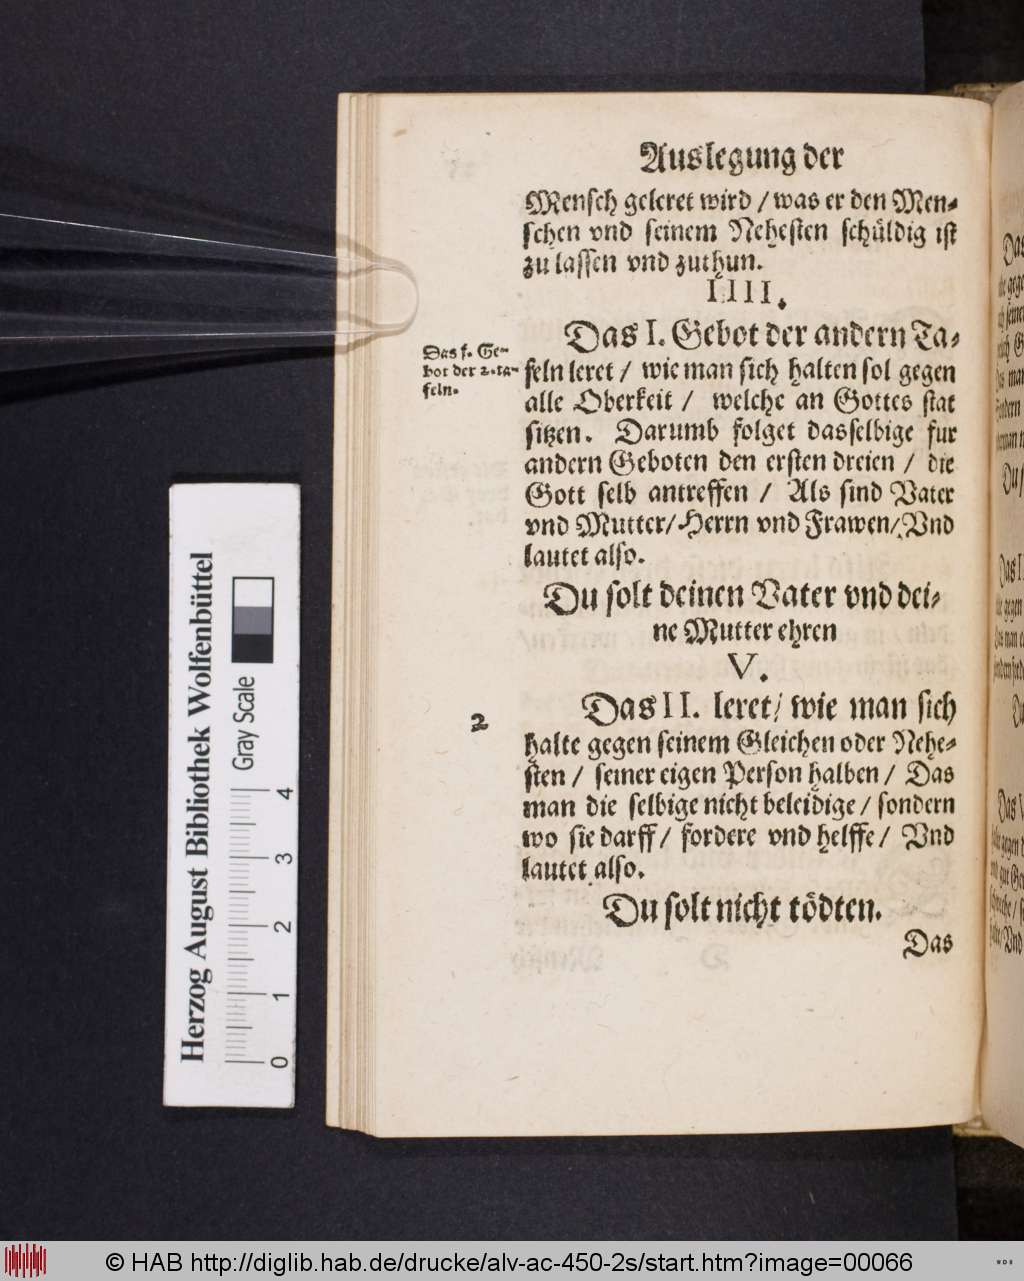 Auslegung der
Mensch geleret wird / was er den Men⸗
schen vnd seinem Nehesten schüldig ist
zu lassen vnd zuthun.
IIII.
Das I. Gebot der andern Ta⸗
feln leret / wie man sich halten sol gegen
alle Oberkeit / welche an Gottes stat
sitzen. Darumb folget dasselbige fur
andern Geboten den ersten dreien / die
Gott selb antreffen / Als sind Vater
vnd Mutter / Herrn vnd Frawen / Vnd
lautet also.
Du solt deinen Vater vnd dei⸗
ne Mutter ehren
V.
Das II. leret / wie man sich
halte gegen seinem Gleichen oder Nehe⸗
sten / seiner eigen Person halben / Das
man die selbige nicht beleidige / sondern
wo sie darff / fordere vnd helffe / Vnd
lautet also.
Du solt nicht tödten.
Das
Das 1. Ge⸗
bot der 2. ta⸗
feln.
2
Herzog August Bibliothek Wolfenbüttel
Gray Scale
0 1 2 3 4
© HAB http://diglib.hab.de/drucke/alv-ac-450-2s/start.htm?image=00066